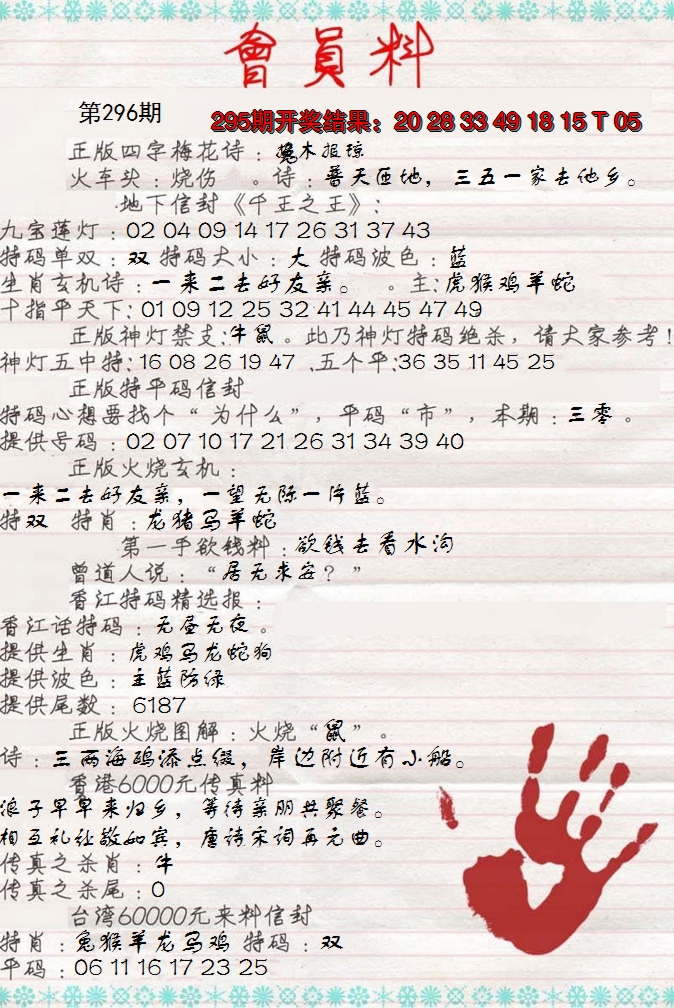 會員料
第296期
295期开奖结果：20 28 33 49 18 15 T 05
正版四字梅花诗：桃木报琼
火车头：烧伤 。诗：普天匝地，三五一家去他乡。
地下信封《千王之王》：
九宝莲灯：02 04 09 14 17 26 31 37 43
特码单双：双 特码大小：大 特码波色：蓝
生肖玄机诗：一来二去好友亲。 。主：虎猴鸡羊蛇
十指平天下：01 09 12 25 32 41 44 45 47 49
正版神灯禁支：牛鼠。此乃神灯特码绝杀，请大家参考！
神灯五中特：16 08 26 19 47 、五个平：36 35 11 45 25
正版特平码信封
特码心想要找个“为什么”，平码“市”，本期：三零。
提供号码：02 07 10 17 21 26 31 34 39 40
正版火烧玄机：
一来二去好友亲，一望无际一片蓝。
特双 特肖：龙猪马羊蛇
第一手欲钱料：欲钱去看水沟
曾道人说：“居无求安？”
香江特码精选报：
香江话特码：无昼无夜。
提供生肖：虎鸡马龙蛇狗
提供波色：主蓝防绿
提供尾数：6187
正版火烧图解：火烧“鼠”。
诗：三两海鸥添点缀，岸边附近有小船。
香港6000元传真料
浪子早早来归乡，等待亲朋共聚餐。
相互礼让敬如宾，唐诗宋词再元曲。
传真之杀肖：牛
传真之杀尾：0
台湾60000元来料信封
特肖：兔猴羊龙马鸡 特码：双
平码：06 11 16 17 23 25